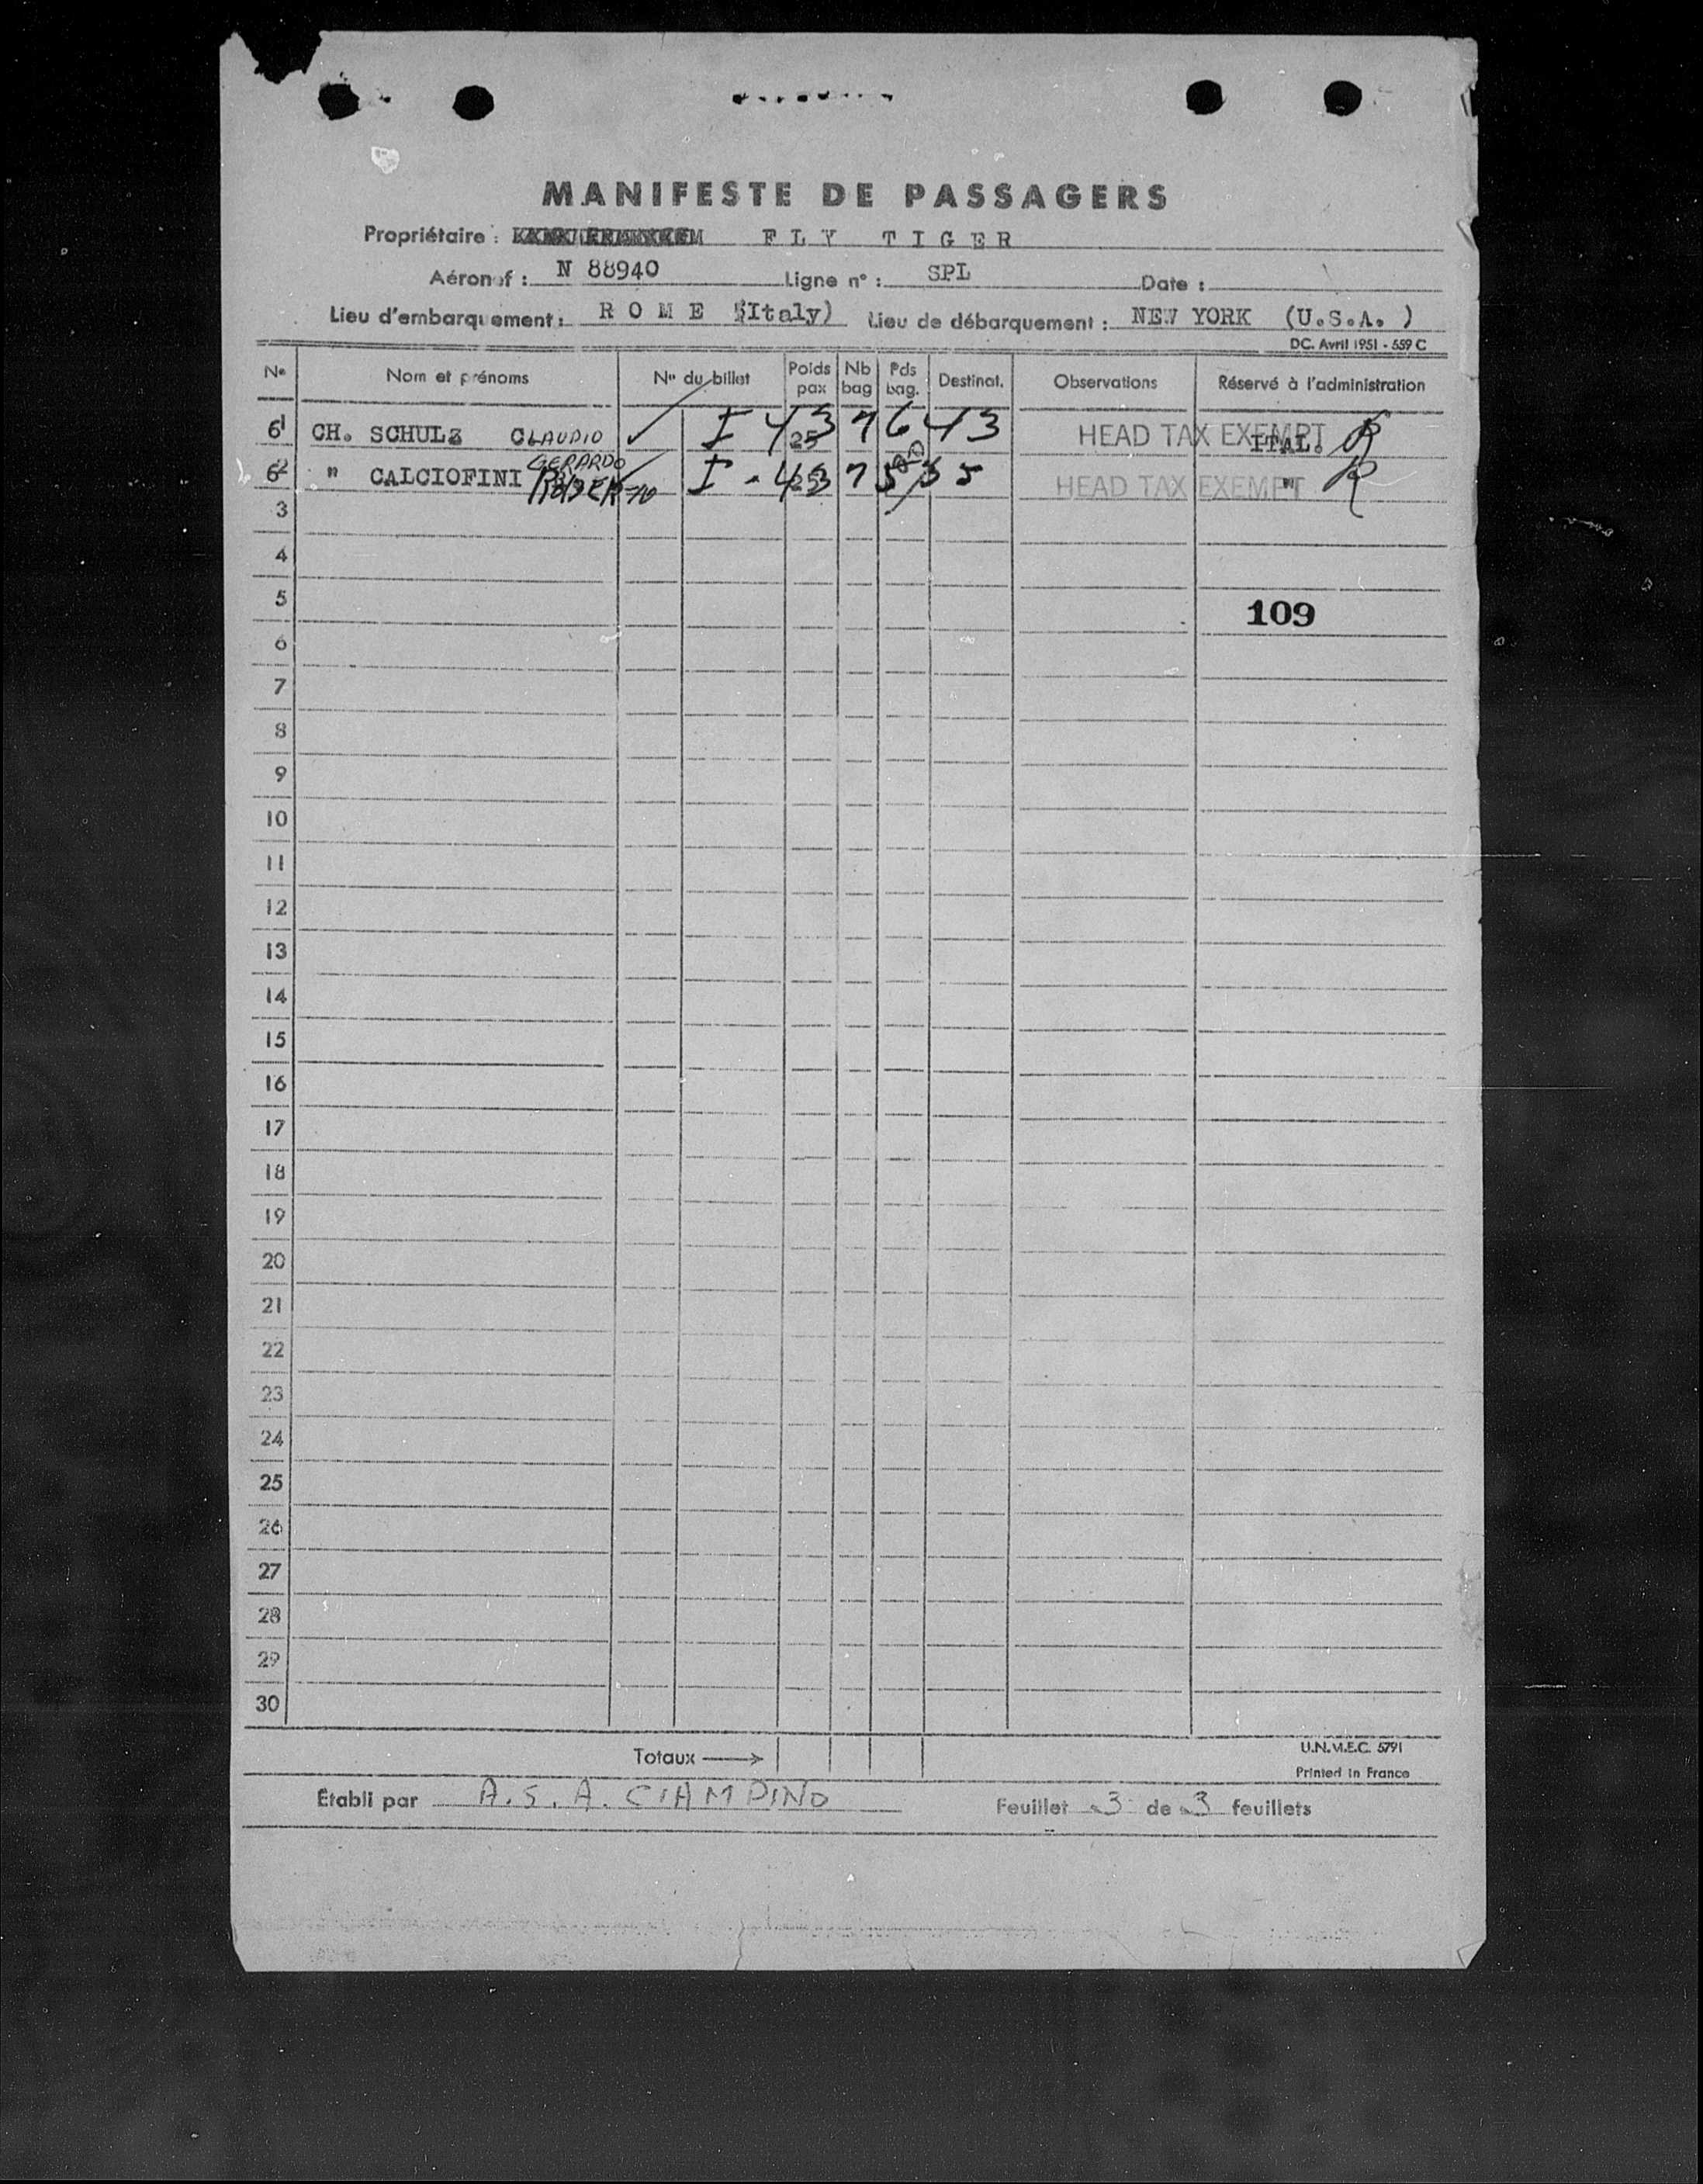 MANIFESTE DE PASSAGERS
Propriétaire : FLY TIGER
Aéronef : N 88940 Ligne n° : SPL Date :
Lieu d'embarquement : ROME (Italy) Lieu de débarquement : NEW YORK (U.S.A. )
DC. Avril 1951 - 559 C
N° Nom et prénoms N° du billet Poids pax Nb bag Pds bag. Destinat. Observations Réservé à l'administration
61 CH. SCHULZ CLAUDIO I 43 25 7 6 43 HEAD TAX EXEMPT ITAL.
GERARDO
62 " CALCIOFINI I - 4 7 5 HEAD TAX EXEMPT "
3
4
5 109
6
7
8
9
10
11
12
13
14
15
16
17
18
19
20
21
22
23
24
25
26
27
28
29
30
Totaux
U.N.M.E.C. 5791
Printed in France
Etabli par A.S.A. CIAMPINO Feuillet 3 de 3 feuillets